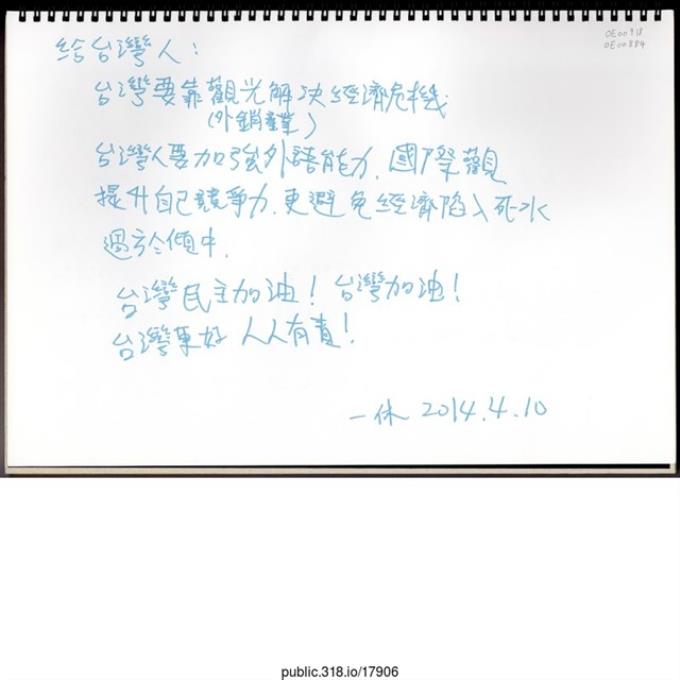 OE00918
OE00884
給台灣人：
台灣要靠觀光解決經濟危機
(外銷產業)
台灣人要加強外語能力, 國際觀
提升自己競爭力, 更避免經濟陷入死水
過於傾中.
台灣民主加油！台灣加油！
台灣更好 人人有責！
一休 2014.4.10
public.318.io/17906